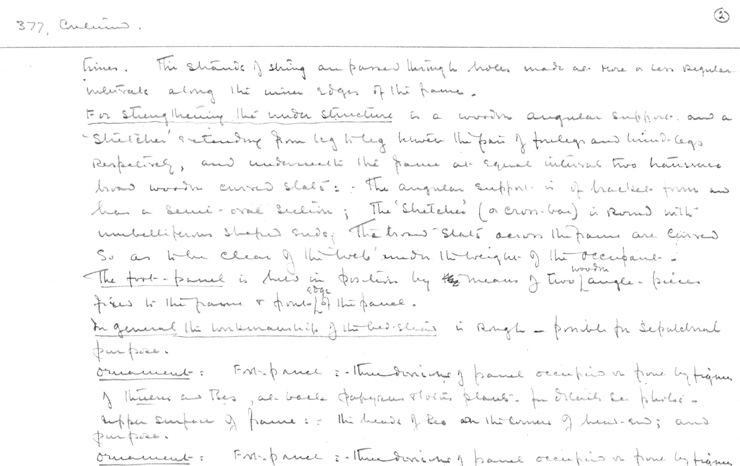 377, Continued.
②
times. The strands of string are passed through holes made at more or less regular
intervals along the inner edges of the frame.
For strengthening the under structure is a wooden angular support and a
"stretcher" extending from leg to leg between the pair of forelegs and hind-legs
respectively, and underneath the frame at equal intervals two transverse
broad wooden curved slats: - The angular support is of bracket form and
has a semi-oval section; The 'stretcher' (or cross-bar) is round with
umbelliferous shaped ends; The broad slats across the frame are curved
so as to be clear of the 'web' under the weight of the occupant.
The foot-panel is held in position by means of two wooden angle-pieces
fixed to the frame & front edge of the panel.
In general the workmanship of the bed-stead is rough – possibly for sepulchral
purpose.
Ornament: Foot-panel: - three divisions of panel occupied on front by figures
of Thueris and Bes, at back papyrus & lotus plants - for details see photo -
upper surface of frame: - the heads of Bes on the corners of head-end; and
purpose.
Ornament: Foot-panel: - three divisions of panel occupied on front by figures